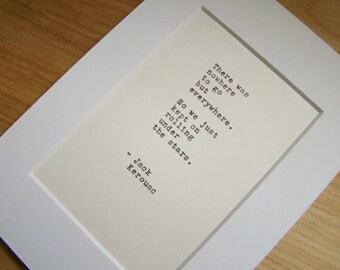 There was
nowhere
to go
but
everywhere.
So we just
kept on
rolling
under
the stars.
- Jack
Kerouac